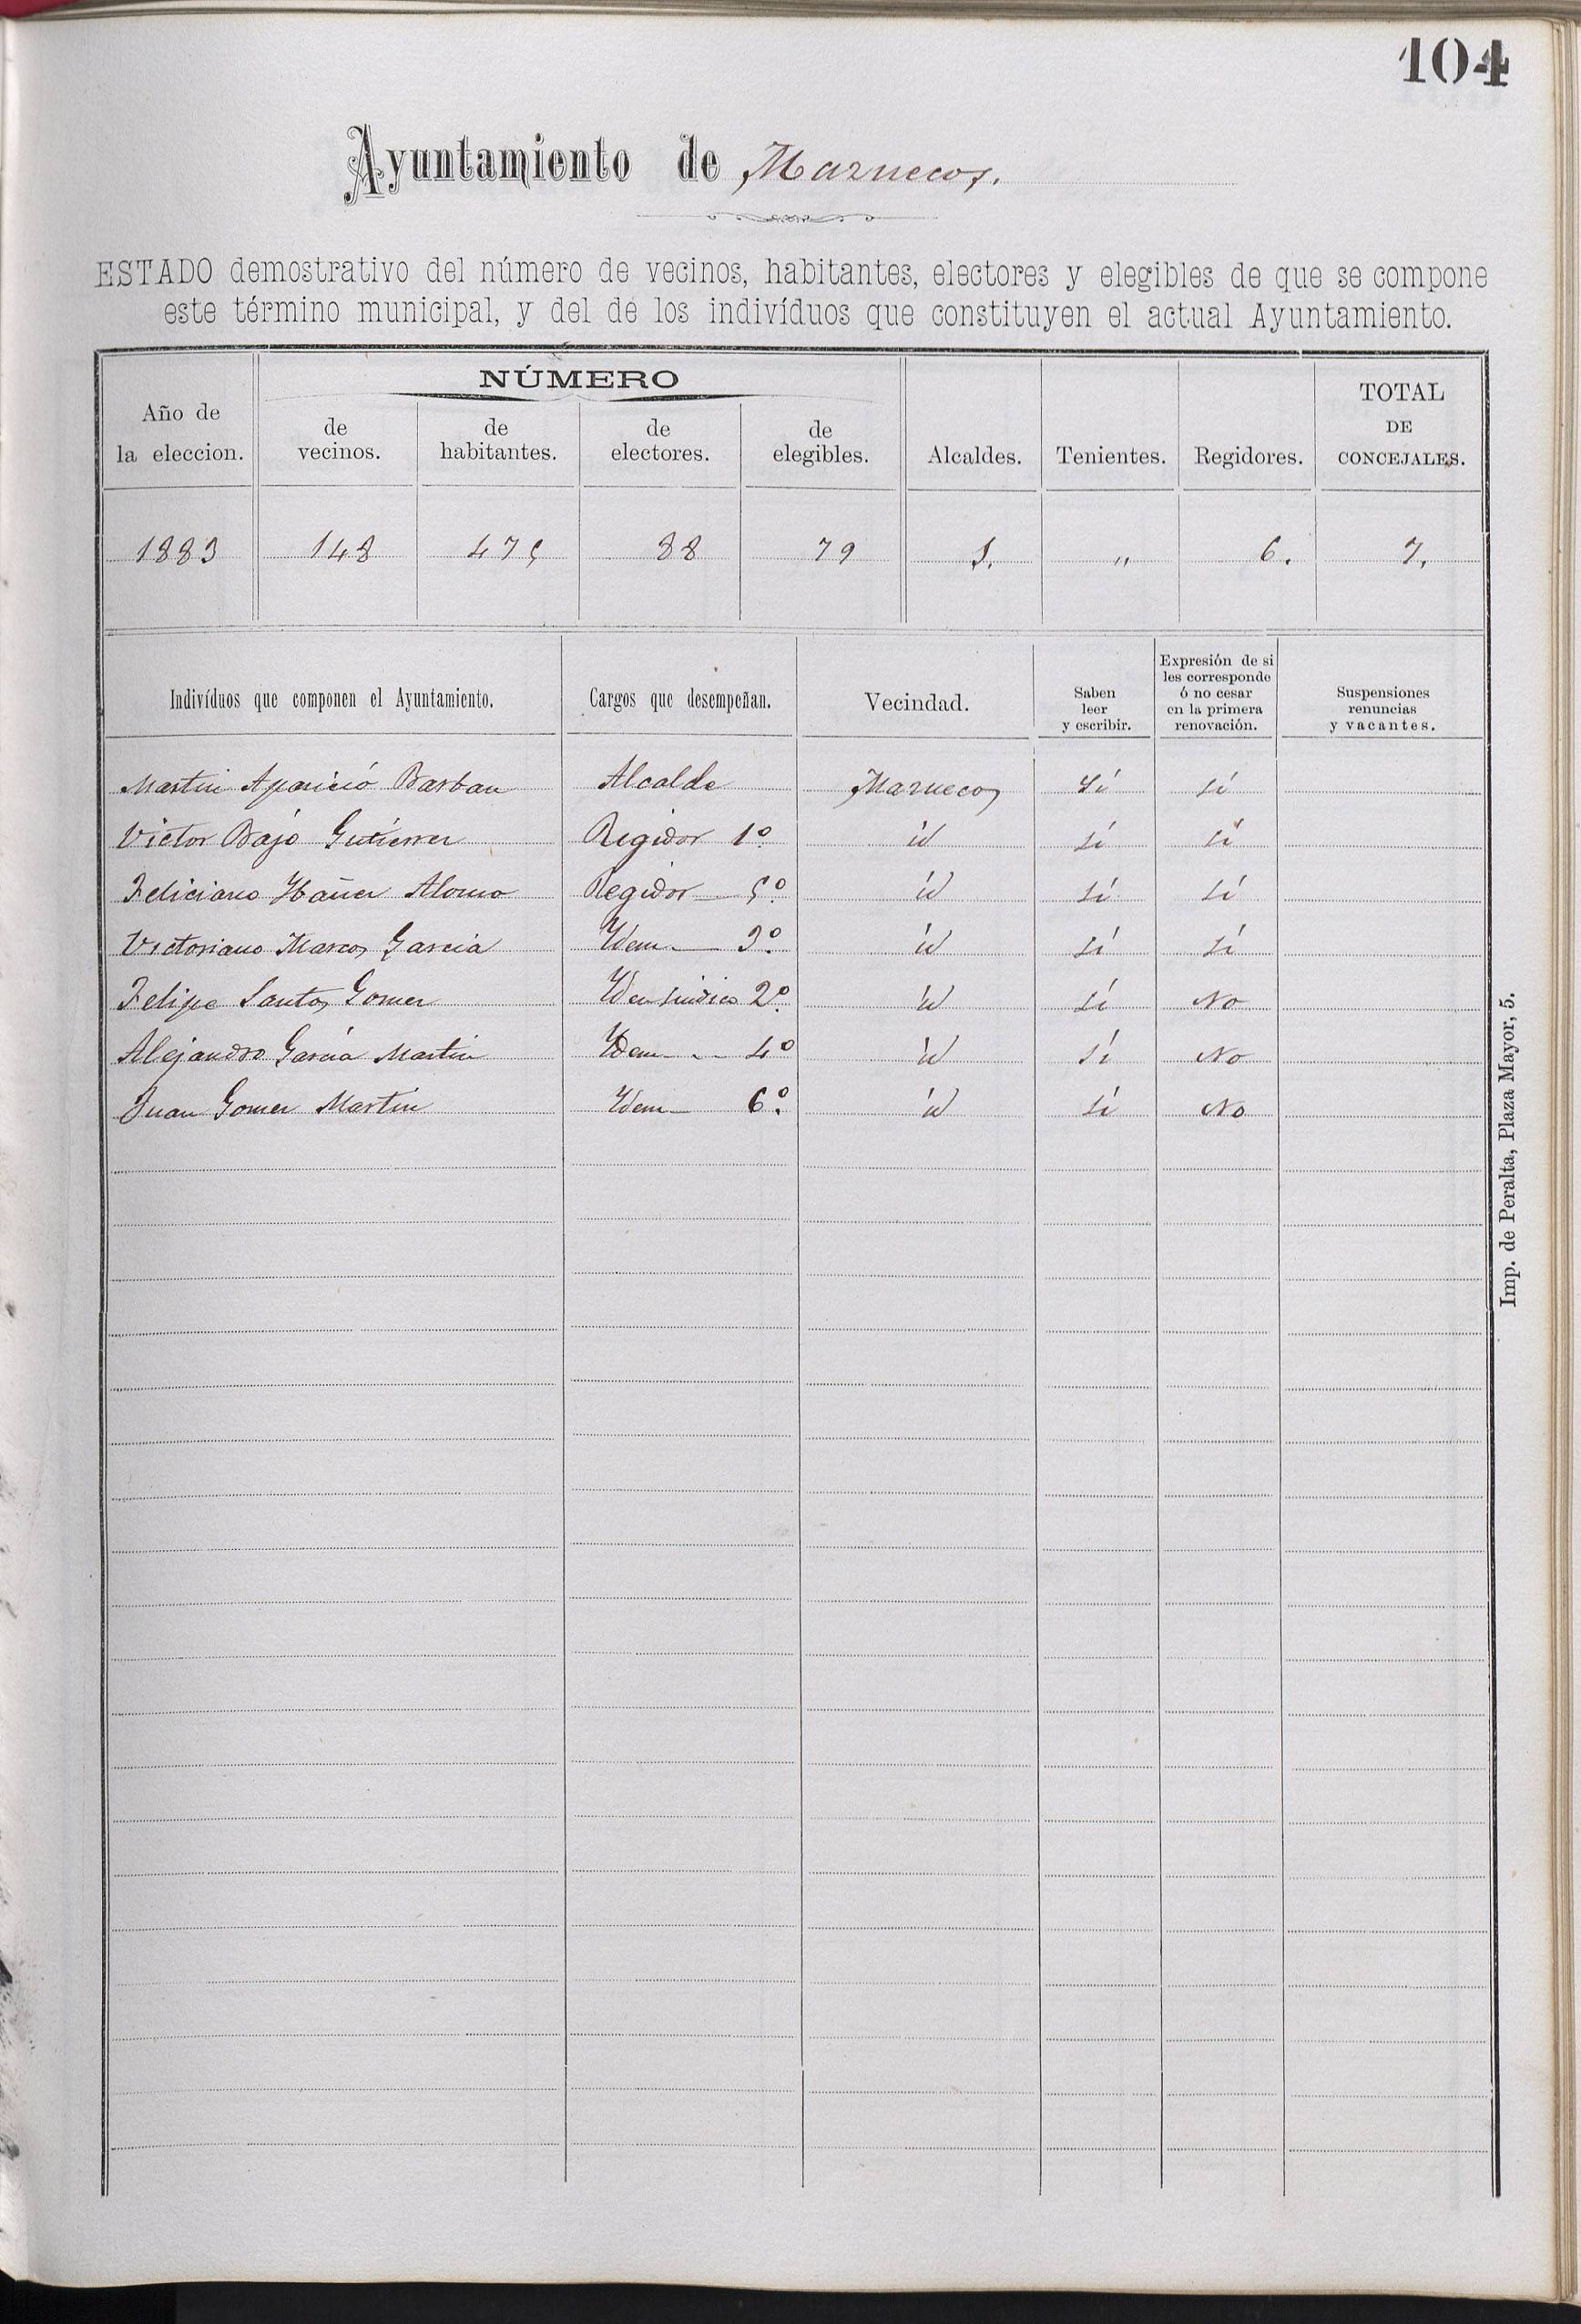 104
Ayuntamiento de Mazuecos.
ESTADO demostrativo del número de vecinos, habitantes, electores y elegibles de que se compone
este término municipal, y del de los indivíduos que constituyen el actual Ayuntamiento.
Año de la eleccion. NÚMERO de vecinos. de habitantes. de electores. de elegibles. Alcaldes. Tenientes. Regidores. TOTAL DE CONCEJALES.
1883 148 475 88 79 1. " 6. 7.
Indivíduos que componen el Ayuntamiento. Cargos que desempeñan. Vecindad. Saben leer y escribir. Expresión de si les corresponde ó no cesar en la primera renovación. Suspensiones renuncias y vacantes.
Martin Aparicio Barban Alcalde Mazuecos Sí sí
Victor Bajo Gutierrez Regidor 1º id sí sí
Feliciano Ybañez Alonso Regidor 5º id sí sí
Victoriano Marcos Garcia Ydem 3º id sí sí
Felipe Santos Gomez Ydem sindico 2º id sí No
Alejandro García Martin Ydem 4º id sí No
Juan Gomez Martin Ydem 6º id sí No
Imp. de Peralta, Plaza Mayor, 5.